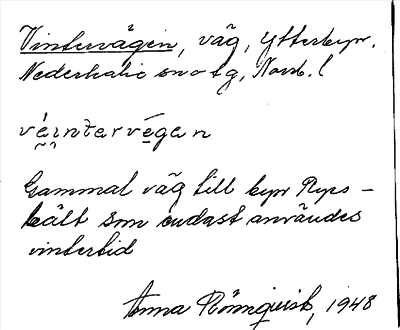 Vintervägen, väg, Ytterbyn.
Nederkalix snotg, Norrb. l
véi̯ntarvégan
Gammal väg till byn Ryss-
bält som endast användes
vintertid
Anna Rönnquist, 1948